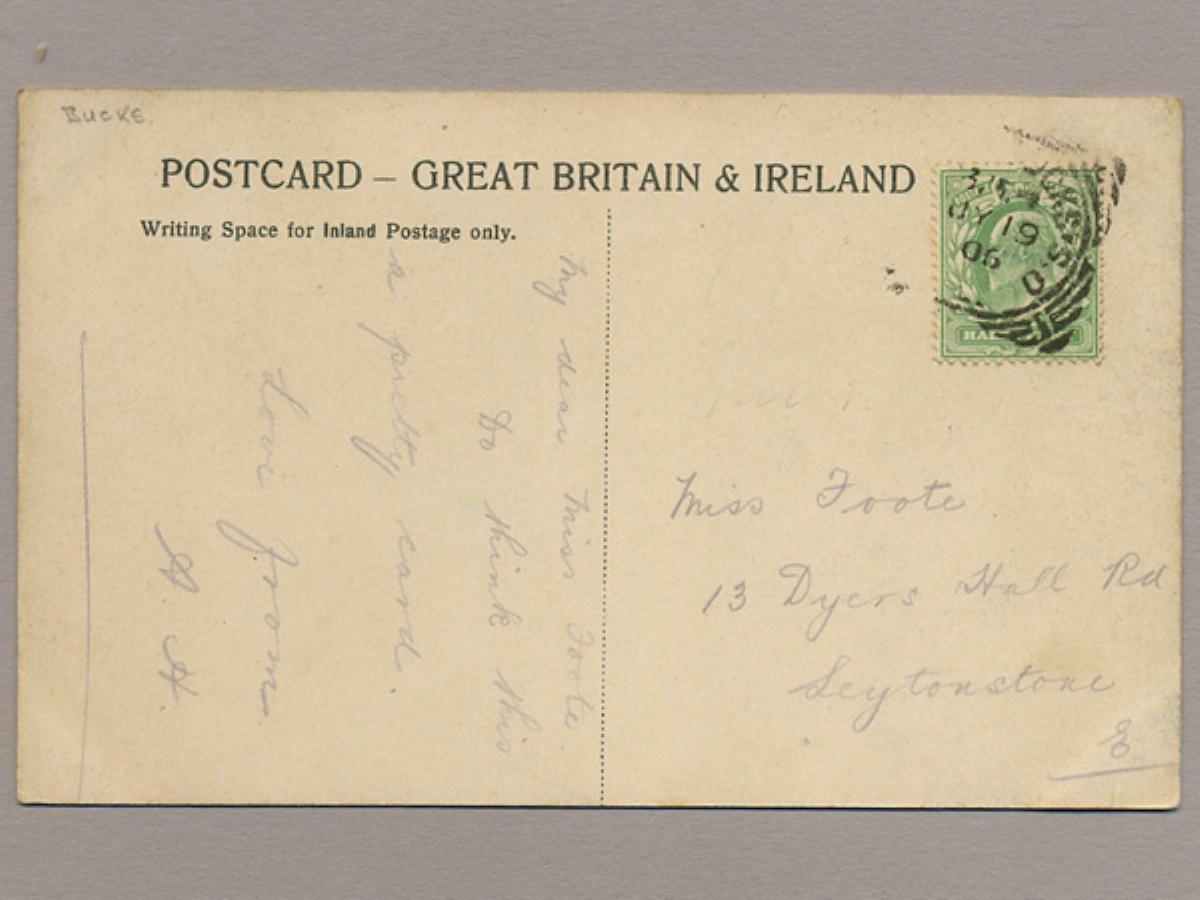 BUCKS.
POSTCARD – GREAT BRITAIN & IRELAND
Writing Space for Inland Postage only.
My dear Miss Foote.
Do think this
a pretty card.
Love from
A. H.
JY 19
06
S.O
HAL
Miss Foote
13 Dyers Hall Rd
Leytonstone
E